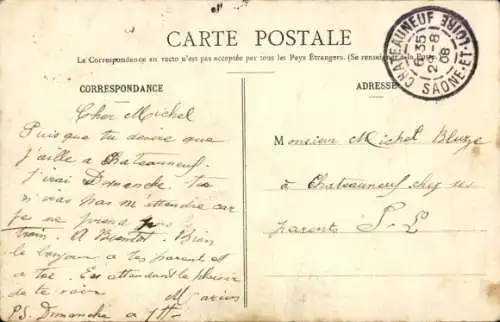 CARTE POSTALE
La Correspondance au recto n'est pas acceptée par tous les Pays Étrangers. (Se renseigner à la Poste)
CORRESPONDANCE
ADRESSE
CHATEAUNEUF
6 35
29 -8
08
SAONE-ET-LOIRE
Cher Michel
Puis que tu desire que
j'aille a Chateauneuf
j'irai Dimanche. tu
n'iras pas m'attendre car
je ne prend pas le
train. A Bientot. Bien
le bonjour a tes parent et
a toi. En attendant le plaisir
de te voir
Marius
P.S. Dimanche a
Monsieur Michel
à Chateauneuf chez ses
parents S-L